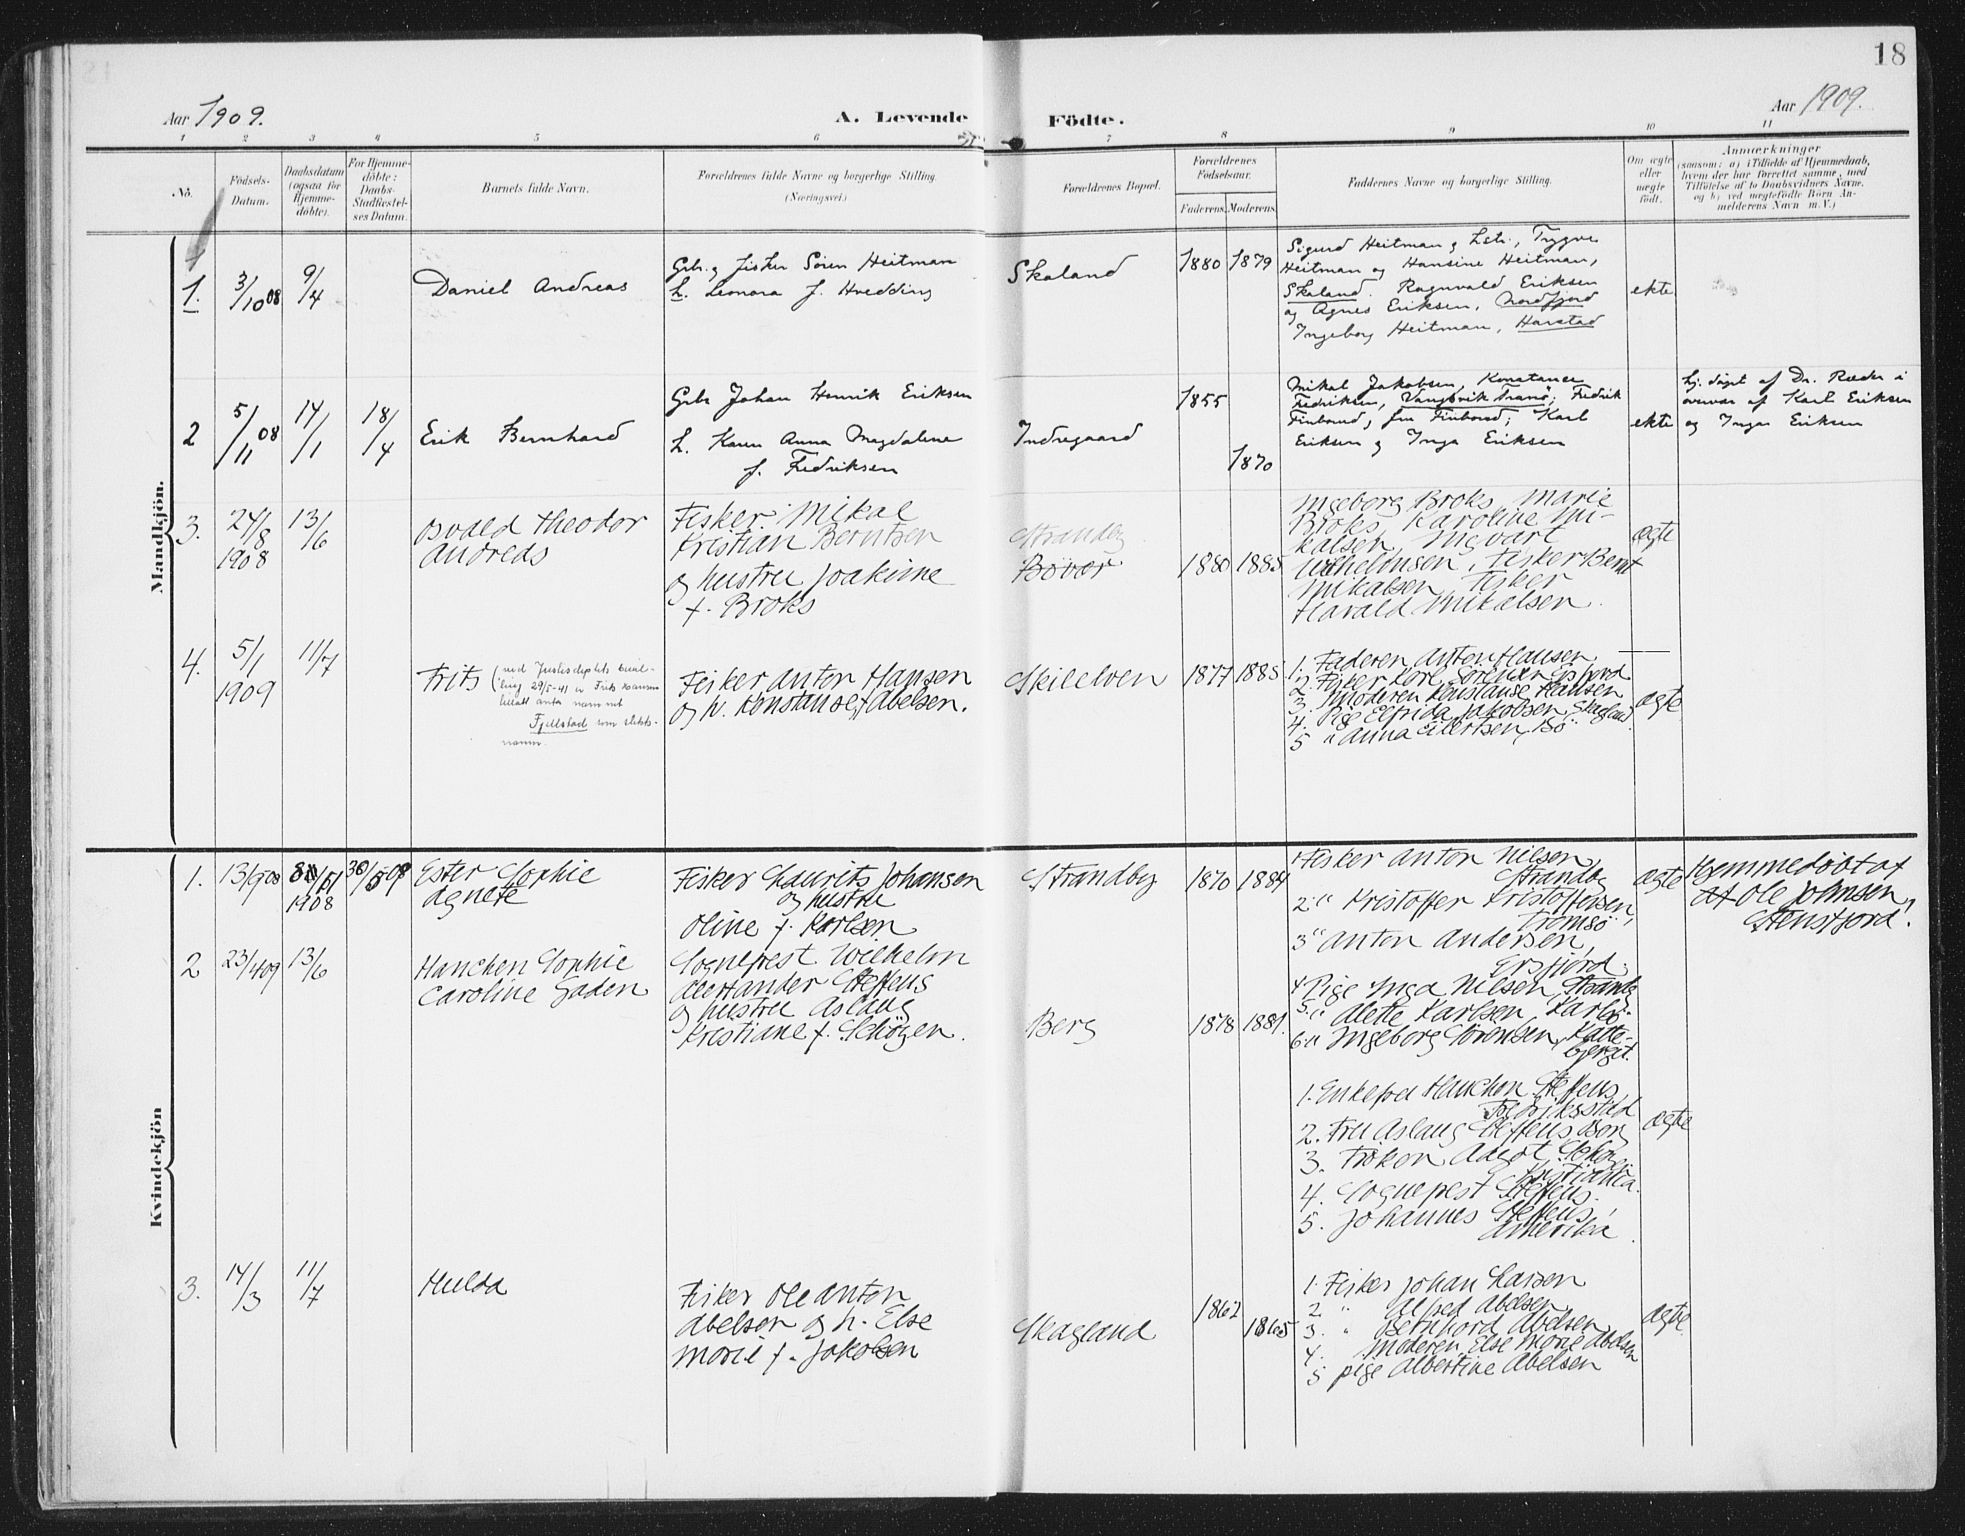 18
Aar 1909.
A. Levende
Födte.
Aar 1909.
1 2 3 4 5 6 7 8 9 10 11
No.
Födsels-
Datum.
Daabsdatum
(ogsaa for
Hjemme-
döbte).
For Hjemme-
döbte:
Daabs-
Stadfæstel-
ses Datum.
Barnets fulde Navn.
Forældrenes fulde Navne og borgerlige Stilling
(Næringsvei)
Forældrenes Bopæl.
Forældrenes
Födselsaar.
Faderens. Moderens.
Faddernes Navne og borgerlige Stilling.
Om ægte
eller
uægte
födt.
Anmærkninger
(saasom: a) i Tilfælde af Hjemmedaab,
hvem der har forrettet samme, med
Tilföielse af to Daabsvidners Navne,
og b) ved uægtefödte Börn An-
melderens Navn m. V.)
Mandkjön.
1.
3/10 08
9/4
Daniel Andreas
Grbr. og fisker Sören Heitman
h. Leonora f. Hvedding
Skaland
1880
1879
Sigurd Heitman og hstr., Trygve
Heitman og Hansine Heitman,
Skaland. Ragnvald Eriksen
og Agnes Eriksen, Nordfjord
Ingeborg Heitman, Harstad
ekte
2
5/11 08
14/1
18/4
Erik Bernhard
Grbr Johan Henrik Eriksen
h. Karen Anna Magdalene
f. Fedriksen
Indregaard
1855
1870
Mikal Jakobsen, Konstance
Fedriksen, Vangsvik Tranö; Fedrik
Finborud, fru Finborud; Karl
Eriksen og Inga Eriksen
ekte
hj. döpt af Dr. Ræder i
overvær af Karl Eriksen
og Inga Eriksen
3.
24/8
1908
13/6
Osvald Theodor
Andreas
Fisker Mikal
Kristian Berntsen
og hustru Joakime
f. Broks
Strandby
Bövær
1880
1885
Ingeborg Broks, Marie
Broks, Karoline Mi-
kalsen, Ingvart
Wilhelmsen, Fisker Bernt
Mikalsen, Fisker
Harald Mikalsen.
ægte
4.
5/1
1909
11/7
Frits
(ved Justisdeptets bevil-
ling 29/5-41 er Frits Hansen
tillatt anta navnet
Fjellstad som slekts-
navn.
Fisker Anton Hansen
og h. Konstanse f. Abelsen.
Skilelven
1877
1885
1. Faderen Anton Hansen
2. Fisker Karl Sörensen Ersfjord
3. Moderen Konstanse Hansen
4. Pige Elfrida Jakobsen, Skagland
5 " Anna Eilertsen, Bö
ægte
Kvindekjön
1.
13/9 08
1908
30/5 09
Ester Sophie
Agnete
Fisker Laurits Johansen
og hustru
Oline f. Karlsen
Strandby
1870
1884
1 Fisker Anton Nilsen,
Strandby
2 " Kristoffer Kristoffersen,
Tromsö
3 " Anton Andersen,
Ersfjord.
4 Pige Inga Nilsen, Strandby
5. " Alette Karlsen, Karlsö.
6. " Ingeborg Sörensen, Katte-
bjerget.
ægte
Hjemmedöbt af
af Ole Johnsen,
Stensfjord.
2
23/4 09
13/6
Hanchen Sophie
Caroline Gaden
Sogneprest Wilhelm
Alexander Steffens
og hustru Aslaug
Kristiane f. Schöyen.
Berg
1878
1881.
1. Enkefru Hanchen Steffens,
Fredriksstad
2. Fru Aslaug Steffens Berg
3. Fröken Aagot
Kristiania.
4. Sogneprest Steffens.
5. Johannes Steffens,
Amerika.
ægte
3.
14/3
11/7
Hulda
Fisker Ole Anton
Abelsen og h. Else
Marie f. Jakobsen
Skagland
1862
1865
1. Fisker Johan Larsen
2. " Alfred Abelsen
3. " Bernhard Abelsen
4. Moderen Else Marie Abelsen
5 pige Albertine Abelsen
ægte